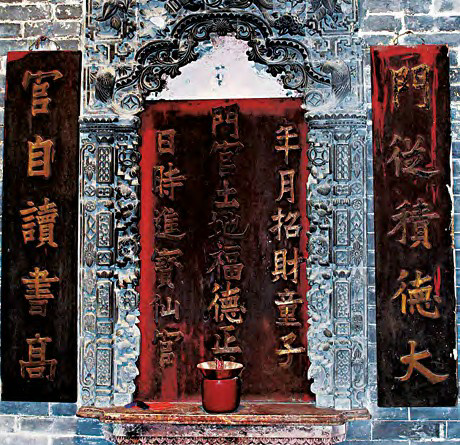 門從積德大
年月招財童子
門官土地福德正
日時進寶仙官
官自讀書高